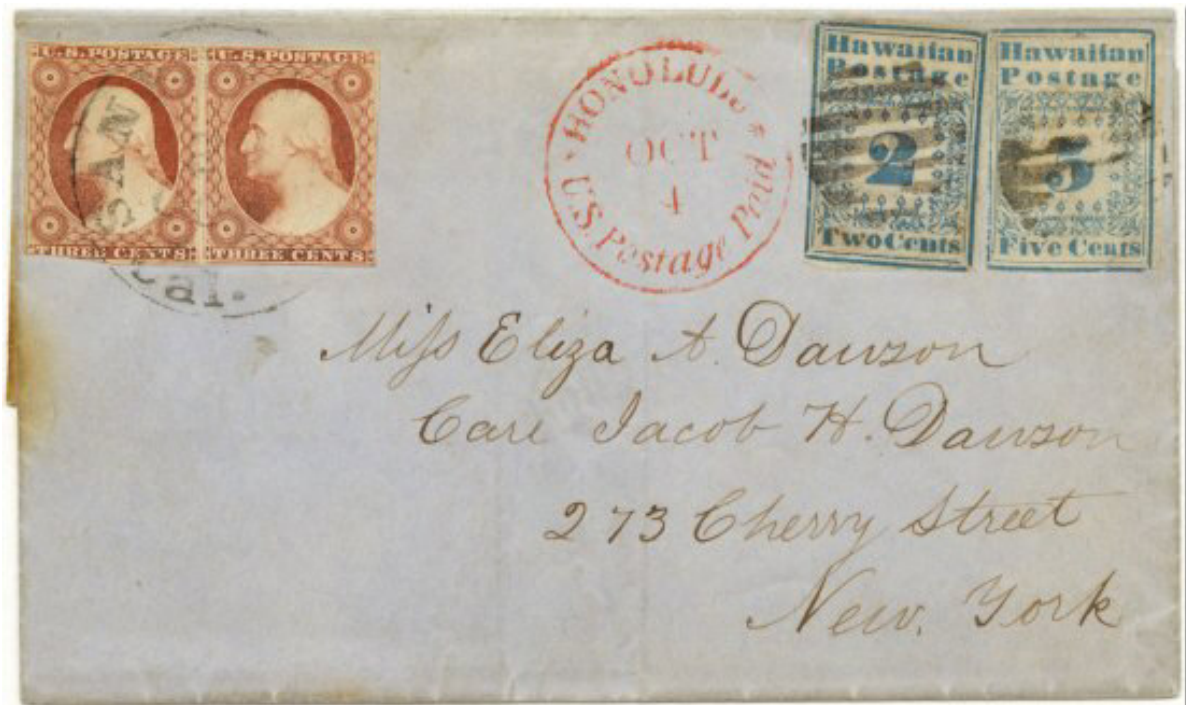 U.S. POSTAGE
THREE CENTS
U.S. POSTAGE
THREE CENTS
SAN
Cal.
HONOLULU * U.S. Postage Paid
OCT
4
Hawaiian
Postage
2
Two Cents
Hawaiian
Postage
5
Five Cents
Miss Eliza A. Dawson
Care Jacob H. Dawson
273 Cherry Street
New York